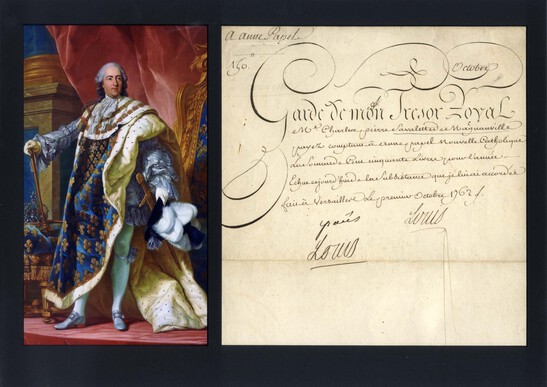 A anne Papel
150.
Octobre
Garde de mon Tresor Royal
Me Charles pierre Savalette de Magnanville
payez comptant à anne papel Nouvelle Catholique
La Somme de Cent cinquante Livres pour l'année
Echue aujourd'huy de la Subsistance que je lui ai accordée
fait à Versailles Le premier Octobre 1762
Louis
Louis